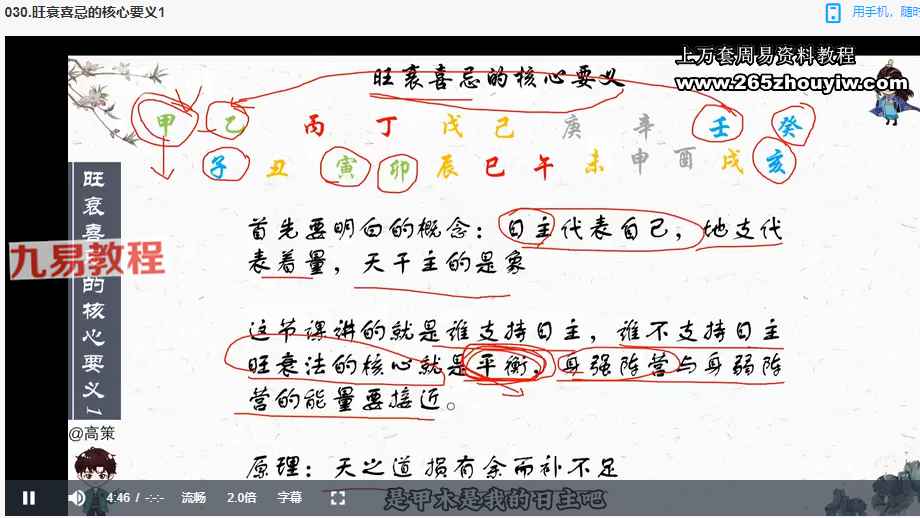 030.旺衰喜忌的核心要义1
用手机，随时
上万套周易资料教程
www.265zhouyiw.com
旺衰喜忌的核心要义
甲 乙 丙 丁 戊 己 庚 辛 壬 癸
子 丑 寅 卯 辰 巳 午 未 申 酉 戌 亥
旺衰喜的核心要义1
九易教程
首先要明白的概念：日主代表自己，地支代
表着量，天干主的是象
这节课讲的就是谁支持日主，谁不支持日主
旺衰法的核心就是平衡，身强阵营与身弱阵
营的能量要接近。
@高策
原理：天之道损有余而补不足
4:46 / -:-:- 流畅 2.0倍 字幕
是甲木是我的日主吧